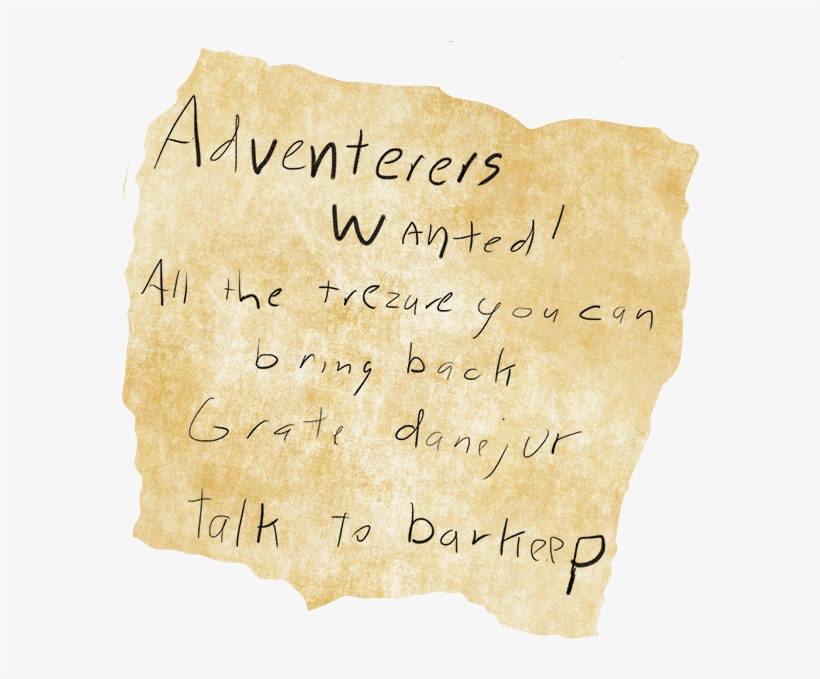 Adventerers
Wanted!
All the trezure you can
bring back
Grate danejur
talk to barkeep